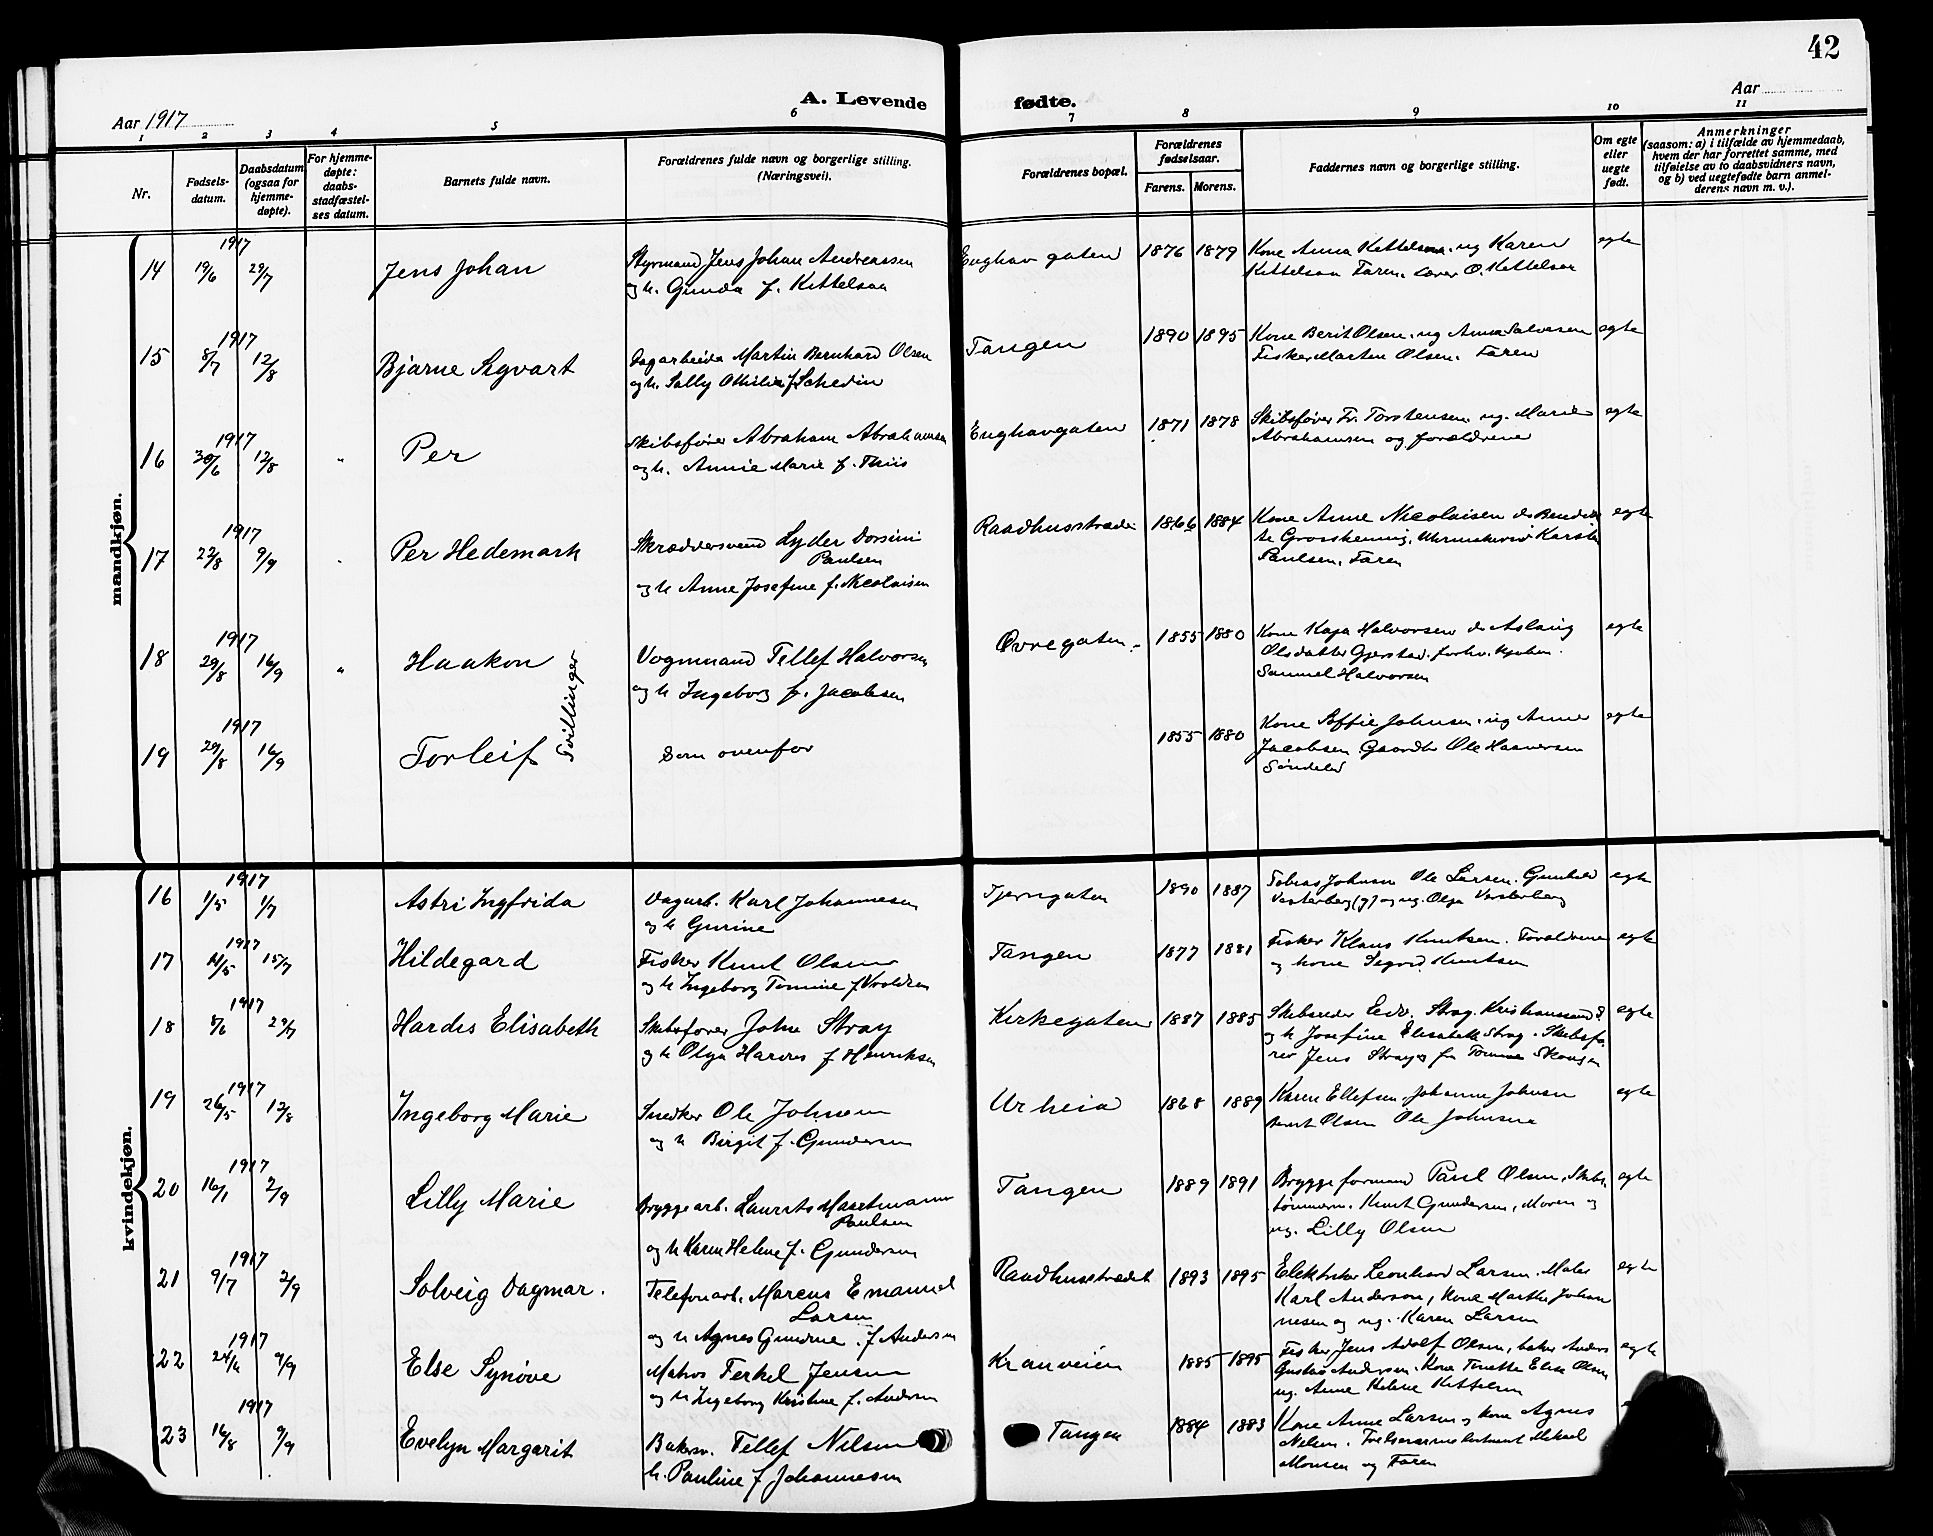 42
Aar 1917
A. Levende fødte.
Aar
1 2 3 4 5 6 7 8 9 10 11
Nr.
Fødsels-
datum.
Daabsdatum
(ogsaa for
hjemme-
døpte).
For hjemme-
døpte:
daabs-
stadfæstel-
ses datum.
Barnets fulde navn.
Forældrenes fulde navn og borgerlige stilling.
(Næringsvei).
Forældrenes bopæl.
Forældrenes
fødselsaar.
Farens. Morens.
Faddernes navn og borgerlige stilling.
Om egte
eller
uegte
født.
Anmerkninger
(saasom: a) i tilfælde av hjemmedaab,
hvem der har forrettet samme, med
tilføielse av to daabsvidners navn,
og b) ved uegtefødte barn anmel-
derens navn m. v.).
mandkjøn.
1917
14 19/6 29/7 Jens Johan
Styrmand Jens Johan Andreassen
og h. Gunda f. Kittelsen
Enghavgaten 1876 1879
Kone Anna Kittelsen. ug Karen
Kittelsen Faren. lærer O. Kittelsen
egte
1917
15 8/7 12/8 Bjarne Sigvart
Dagarbeider Martin Bernhard Olsen
og h. Sally Othilie f. Schedin
Tangen 1890 1895
Kone Berit Olsen. ug Anna Salvesen
Fisker Marten Olsen. Faren
egte
1917
16 30/6 12/8 " Per
Skibsfører Abraham Abrahamsen
og h. Annie Marie f. Thiis
Enghavgaten 1871 1878
Skibsfører Fr. Torstensen ug. Marie
Abrahamsen og forældrene
egte
1917
17 22/8 9/9 Per Hedemark
Skræddersvend Lyder Dorsini
Paulsen
og h Anne Josefine f. Nicolaisen
Raadhusstræde 1866 1884
Kone Anne Nicolaisen
Karsten
Paulsen. Faren
egte
1917
18 29/8 16/9 " Haakon
Tvillinger
Vognmand Tellef Halvorsen
og h Ingeborg f. Jacobsen
Øvregaten 1855 1880
Kone Kaja Halvorsen Aslaug
Olsdatter Gjerstad. forhv.
Samuel Halvorsen
egte
1917
19 29/8 16/9 Torleif
Som ovenfor
1855 1880
Kone Soffie Johnsen. ug Anne
Jacobsen Gaardbr Ole Haaversen
Søndeled
egte
kvindekjøn.
1917
16 1/5 1/7 Astri Ingfrida
Dagarb. Karl Johannesen
og h Gurine
Tjerngaten 1890 1887
Tobias Johnsen Ole Larsen. Gunhild
Vesterberg (g) og ug. Olga Vesterberg
egte
1917
17 15/7 Hildegard
Fisker Knut Olsen
og h Ingeborg Tomine f
Tangen 1877 1881
Fisker Klaus Knutsen. Forældrene
og kone Sigrid Knutsen
egte
1917
18 29/7 Hardis Elisabeth
Skibsfører John Stray
og h Olga Hardis f Henriksen
Kirkegaten 1887 1885
Skibsreder Edv. Stray. Kristianssand S
og h Josefine Elisabeth Stray. Skibsfø-
rer Jens Stray og fr Tomine Skougen
egte
1917
19 26/5 12/8 Ingeborg Marie
Snedker Ole Johnsen
og h Birgit f. Gundersen
Urheia 1868 1889
Karen Ellefsen. Johanne Johnsen
Olsen Ole Johnsen
egte
1917
20 16/1 2/9 Lilly Marie
Bryggearb. Laurits Martinsen
Paulsen
og h Karen Helene f. Gundersen
Tangen 1889 1891
Bryggeformand Paul Olsen, Skibs-
tømmerm. Knut Gundersen, Moren og
ug. Lilly Olsen
egte
1917
21 9/7 2/9 Solveig Dagmar.
Telefonarb. Marcus Emanuel
Larsen
og h Agnes Gunda f Andersen
Raadhusstrædet 1893 1895
Elektriker Leonhard Larsen. Maler
Karl Anderson, Kone Marthe Johan
nesen og ug. Karen Larsen
egte
1917
22 9/9 Else Synøve
Matros Terkel Jensen
og h Ingeborg Kristine f. Andersen
Kranveien 1885 1895
Fisker Jens Adolf Olsen, baker Anders
Gustav Andersen. Kone Tinette Elise Olsen
ug. Anne Helene Kittelsen
egte
1917
23 16/8 9/9 Evelyn Margarit
Bakersv. Tellef Nilsen
h. Pauline f Johannesen
Tangen 1884 1883
Kone Anne Larsen og kone Agnes
Nilsen. Frelsesarmeløitnant Mikael
Monsen og Faren